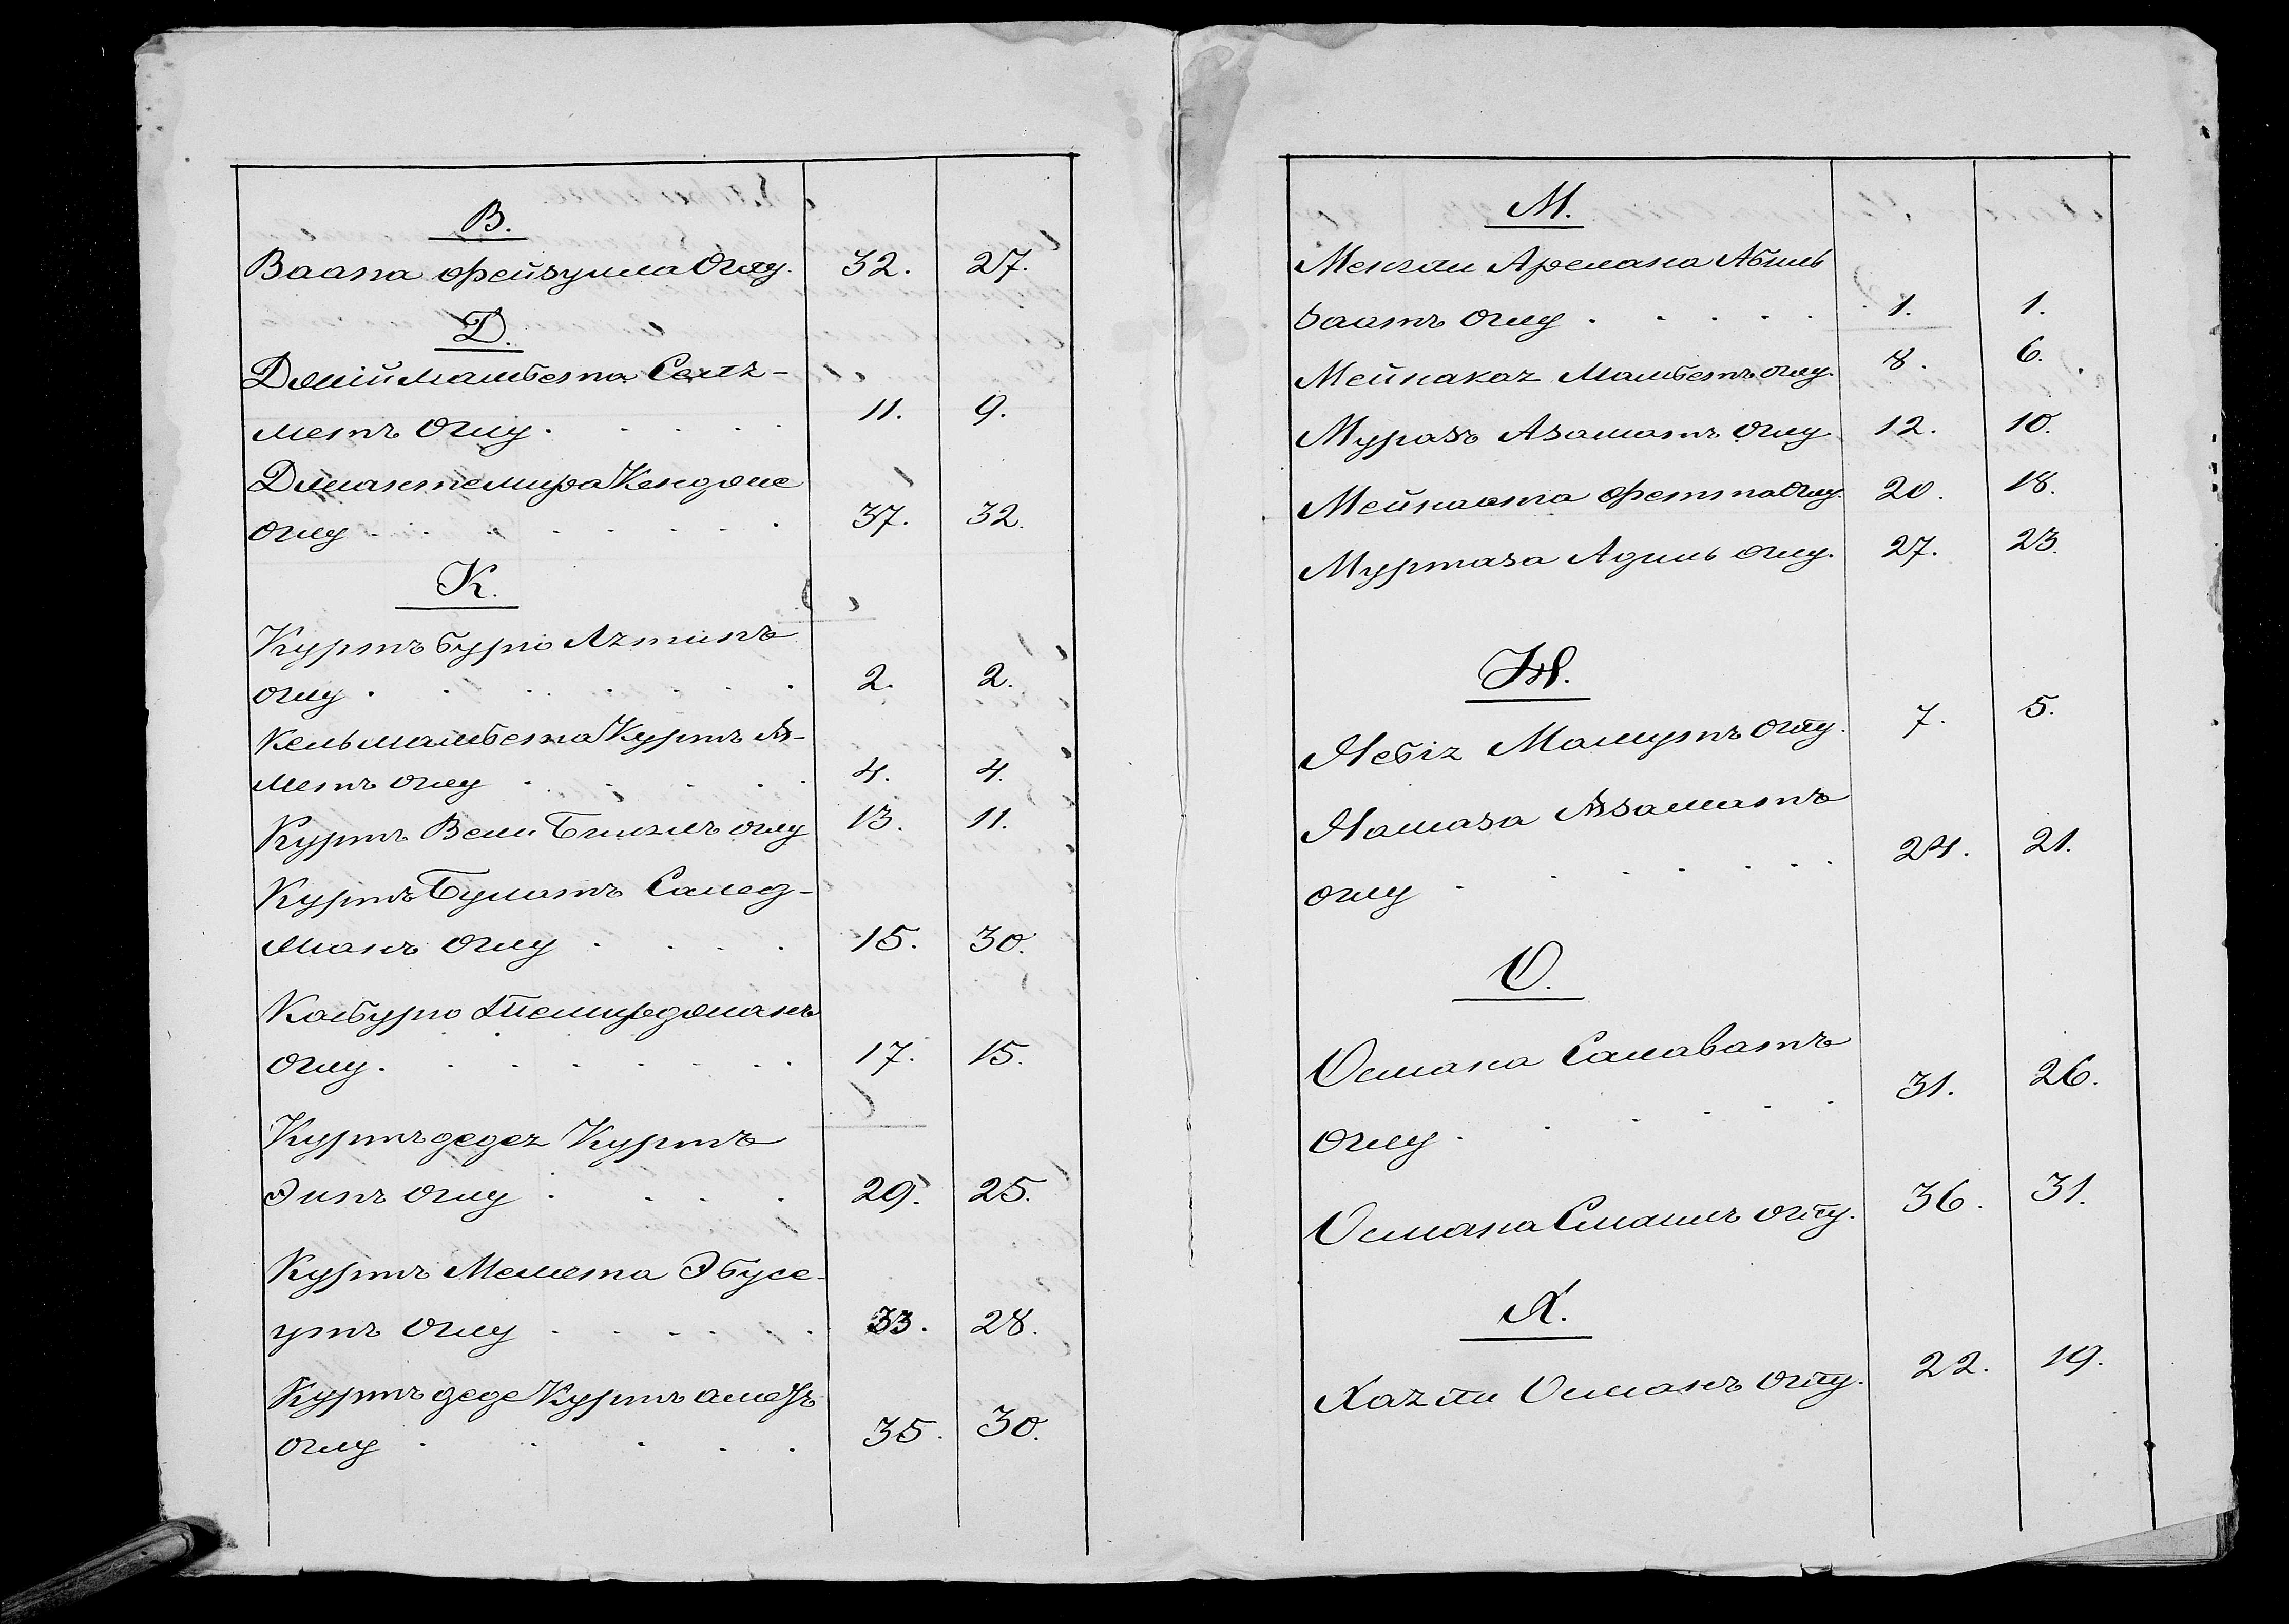 В.
Ваапа Фейзулла Оглу. 32. 27.
Д.
Джiймамбета Сеит-
метъ Оглу. 11. 9.
Джантемира Кенджие
оглу 37. 32.
К.
Куртъ бурю Азтинъ
оглу 2. 2.
Кельмамбета Куртъ А-
метъ оглу 4. 4.
Куртъ Вели Бинзлъ оглу 13. 11.
Куртъ Булатъ Самед-
манъ Оглу 15. 30.
Кобурю Темирджанъ
Оглу. 17. 15.
Куртъ дедег Куртъ
Эипъ Оглу 29. 25.
Куртъ Мемета Эбусе-
утъ Оглу 33. 28.
Куртъ деде Куртъ аметъ
оглу 35. 30.
М.
Менгли Арслана Абиль
ваапъ Оглу 1. 1.
Мейнакаг Мамбетъ оглу. 8. 6.
Муразъ Азаматъ оглу 12. 10.
Мейнаста Фетта Оглу. 20. 18.
Муртаза Адиль оглу. 27. 23.
Н.
Небiг Мамутъ оглу. 7. 5.
Намаза Азаматъ
оглу 24. 21.
О.
Османа Салаватъ
оглу 31. 26.
Османа Смаилъ оглу. 36. 31.
Х.
Хазли Османъ оглу. 22. 19.